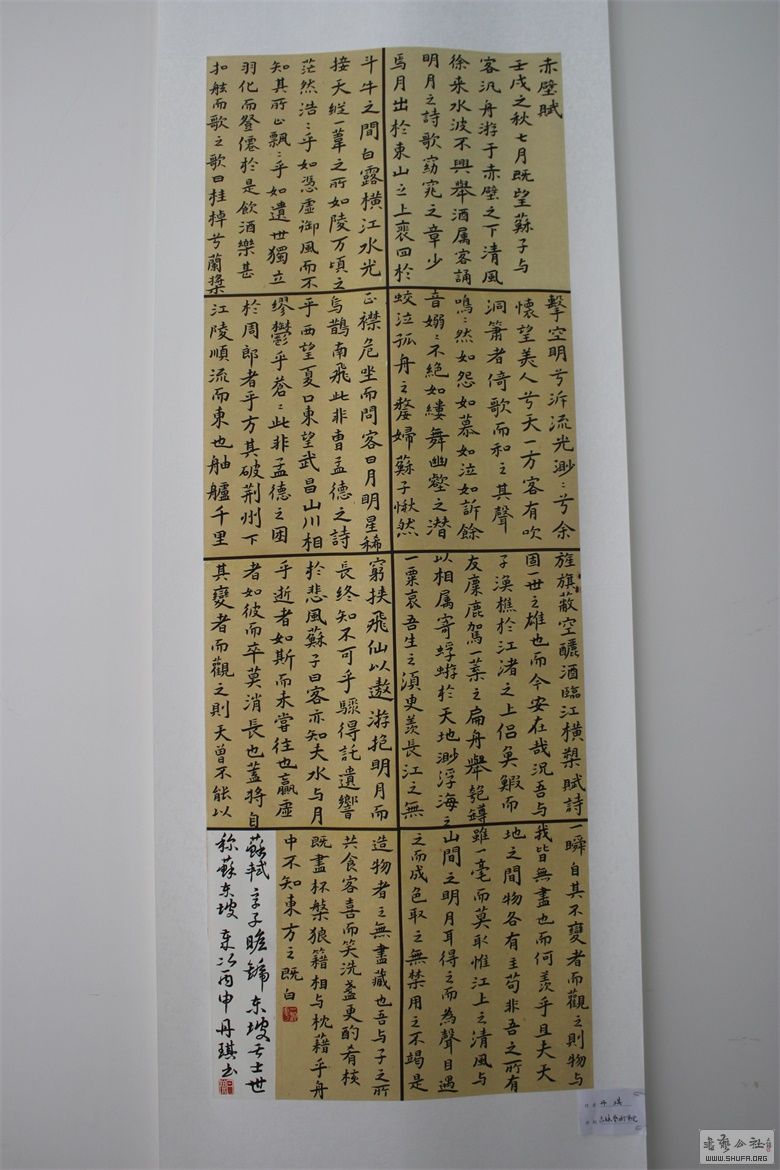 赤壁賦
壬戌之秋七月既望蘇子与
客汎舟游于赤壁之下清風
徐来水波不興舉酒属客誦
明月之詩歌窈窕之章少
焉月出於東山之上裵回於
斗牛之間白露橫江水光
接天縱一葦之所如陵万頃之
茫然浩〻乎如馮虛御風而不
知其所止飄〻乎如遺世獨立
羽化而登僊於是飲酒樂甚
扣舷而歌之歌曰桂棹兮蘭槳
擊空明兮泝流光渺〻兮余
懷望美人兮天一方客有吹
洞簫者倚歌而和之其聲
嗚〻然如怨如慕如泣如訴餘
音嫋〻不絕如縷舞幽壑之潛
蛟泣孤舟之嫠婦蘇子愀然
正襟危坐而問客曰月明星稀
烏鵲南飛此非曹孟德之詩
乎西望夏口東望武昌山川相
繆鬱乎蒼〻此非孟德之困
於周郎者乎方其破荆州下
江陵順流而東也舳艫千里
旌旗蔽空釃酒臨江橫槊賦詩
固一世之雄也而今安在哉況吾与
子漁樵於江渚之上侶魚鰕而
友麋鹿駕一葉之扁舟舉匏罇
以相属寄蜉蝣於天地渺浮海之
一粟哀吾生之湏臾羨長江之無
窮挾飛仙以遨游抱明月而
長終知不可乎驟得託遺響
於悲風蘇子曰客亦知夫水与月
乎逝者如斯而未嘗往也贏虛
者如彼而卒莫消長也蓋將自
其變者而觀之則天曾不能以
一瞬自其不變者而觀之則物与
我皆無盡也而何羨乎且夫天
地之間物各有主苟非吾之所有
雖一毫而莫取惟江上之清風与
山間之明月耳得之而為聲目遇
之而成色取之無禁用之不竭是
造物者之無盡藏也吾与子之所
共食客喜而笑洗盞更酌肴核
既盡杯槃狼籍相与枕藉乎舟
中不知東方之既白
蘇軾字子瞻號东坡居士世
称蘇东坡 丙申丹琪书
丹琪
吉林艺术学院
书艺公社
WWW.SHUFA.ORG